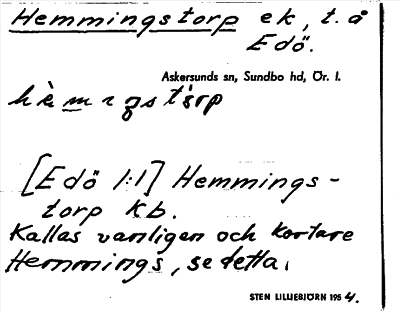 Hemmingstorp ek, t. å
Edö.
Askersunds sn, Sundbo hd, Ör. l.
[Edö 1:1] Hemmings-
torp Kb.
Kallas vanligen och kortare
Hemmings, se detta.
STEN LILLIEBJÖRN 1954.